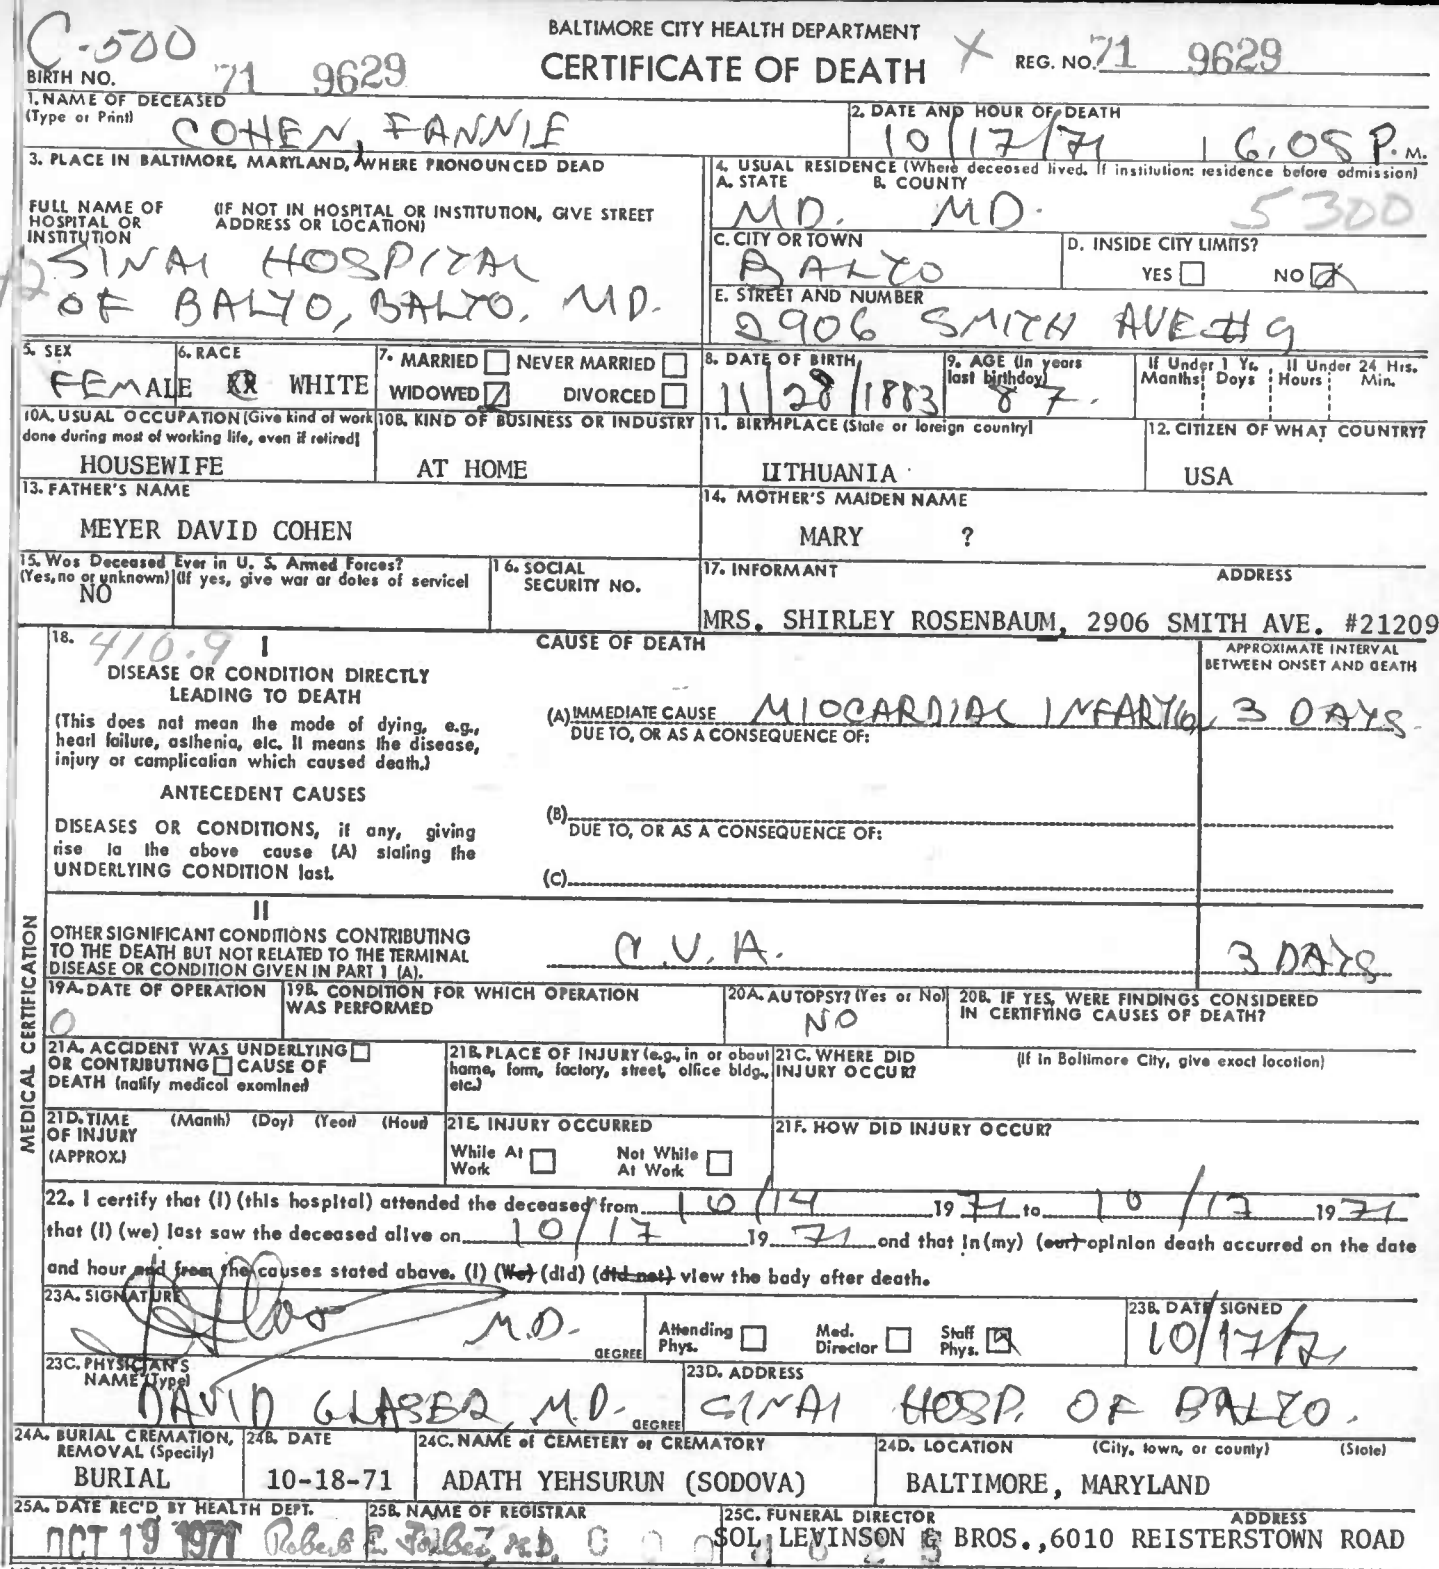 C-500
BALTIMORE CITY HEALTH DEPARTMENT
CERTIFICATE OF DEATH
X
REG. NO. 71 9629
BIRTH NO. 71 9629
1. NAME OF DECEASED
(Type or Print)
COHEN, FANNIE
2. DATE AND HOUR OF DEATH
10/17/71 6.05 P. M.
3. PLACE IN BALTIMORE, MARYLAND, WHERE PRONOUNCED DEAD
FULL NAME OF HOSPITAL OR INSTITUTION
(IF NOT IN HOSPITAL OR INSTITUTION, GIVE STREET ADDRESS OR LOCATION)
SINAI HOSPITAL
OF BALTO, BALTO, MD.
4. USUAL RESIDENCE (Where deceased lived. If institution: residence before admission)
A. STATE B. COUNTY
MD. MD. 5300
C. CITY OR TOWN
BALTO
D. INSIDE CITY LIMITS?
YES NO
E. STREET AND NUMBER
2906 SMITH AVE #9
5. SEX
FEMALE
6. RACE
WHITE
7. MARRIED NEVER MARRIED
WIDOWED DIVORCED
8. DATE OF BIRTH
11/28/1883
9. AGE (In years last birthday)
87.
If Under 1 Yr. Months Days
If Under 24 Hrs. Hours Min.
10A. USUAL OCCUPATION (Give kind of work done during most of working life, even if retired)
HOUSEWIFE
10B. KIND OF BUSINESS OR INDUSTRY
AT HOME
11. BIRTHPLACE (State or foreign country)
LITHUANIA
12. CITIZEN OF WHAT COUNTRY?
USA
13. FATHER'S NAME
MEYER DAVID COHEN
14. MOTHER'S MAIDEN NAME
MARY ?
15. Was Deceased Ever in U. S. Armed Forces?
(Yes, no or unknown) (If yes, give war or dates of service)
NO
16. SOCIAL SECURITY NO.
17. INFORMANT ADDRESS
MRS. SHIRLEY ROSENBAUM, 2906 SMITH AVE. #21209
MEDICAL CERTIFICATION
18. 410.9 I
CAUSE OF DEATH
APPROXIMATE INTERVAL BETWEEN ONSET AND DEATH
DISEASE OR CONDITION DIRECTLY LEADING TO DEATH
(This does not mean the mode of dying, e.g., heart failure, asthenia, etc. It means the disease, injury or complication which caused death.)
(A) IMMEDIATE CAUSE MIOCARDIAL INFARTION 3 DAYS
DUE TO, OR AS A CONSEQUENCE OF:
ANTECEDENT CAUSES
DISEASES OR CONDITIONS, if any, giving rise to the above cause (A) stating the UNDERLYING CONDITION last.
(B)
DUE TO, OR AS A CONSEQUENCE OF:
(C)
II
OTHER SIGNIFICANT CONDITIONS CONTRIBUTING TO THE DEATH BUT NOT RELATED TO THE TERMINAL DISEASE OR CONDITION GIVEN IN PART 1 (A).
C.V.A. 3 DAYS
19A. DATE OF OPERATION
0
19B. CONDITION FOR WHICH OPERATION WAS PERFORMED
20A. AUTOPSY? (Yes or No)
NO
20B. IF YES, WERE FINDINGS CONSIDERED IN CERTIFYING CAUSES OF DEATH?
21A. ACCIDENT WAS UNDERLYING OR CONTRIBUTING CAUSE OF DEATH (notify medical examiner)
21B. PLACE OF INJURY (e.g., in or about home, farm, factory, street, office bldg., etc.)
21C. WHERE DID INJURY OCCUR? (If in Baltimore City, give exact location)
21D. TIME OF INJURY (APPROX.) (Month) (Day) (Year) (Hour)
21E. INJURY OCCURRED
While At Work Not While At Work
21F. HOW DID INJURY OCCUR?
22. I certify that (I) (this hospital) attended the deceased from 10/14 1971 to 10/17 1971
that (I) (we) last saw the deceased alive on 10/17 1971 and that in (my) (our) opinion death accurred on the date
and hour and from the causes stated above. (I) (We) (did) (did not) view the body after death.
23A. SIGNATURE
M.D. DEGREE
Attending Phys. Med. Director Staff Phys.
23B. DATE SIGNED
10/17/71
23C. PHYSICIAN'S NAME (Type)
DAVID GLASER, M.D. DEGREE
23D. ADDRESS
SINAI HOSP. OF BALTO.
24A. BURIAL CREMATION, REMOVAL (Specify)
BURIAL
24B. DATE
10-18-71
24C. NAME of CEMETERY or CREMATORY
ADATH YEHSURUN (SODOVA)
24D. LOCATION (City, town, or county) (State)
BALTIMORE, MARYLAND
25A. DATE REC'D BY HEALTH DEPT.
OCT 19 1971
25B. NAME OF REGISTRAR
Robert E. Farber, M.D.
25C. FUNERAL DIRECTOR ADDRESS
SOL LEVINSON & BROS., 6010 REISTERSTOWN ROAD